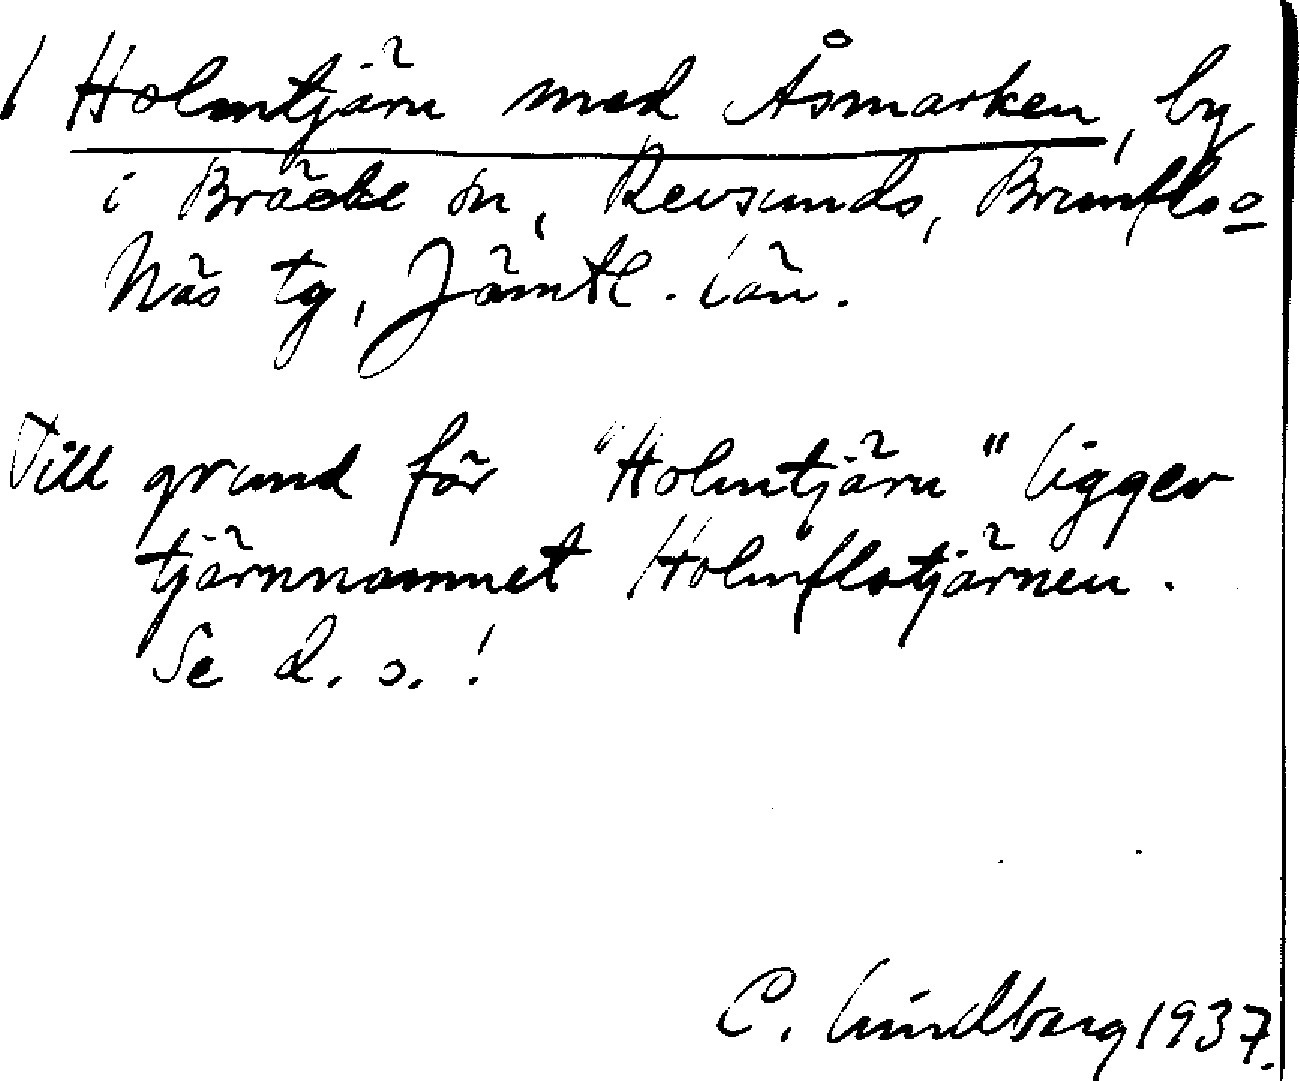 / Holmtjärn med Åsmarken, by
i Bräcke sn, Revsunds, Brunflo o
Näs tg, Jämtl. län.
Till grund för "Holmtjärn" ligger
tjärnnamnet Holmflotjärnen.
Se d. o.!
C. Lindberg 1937.